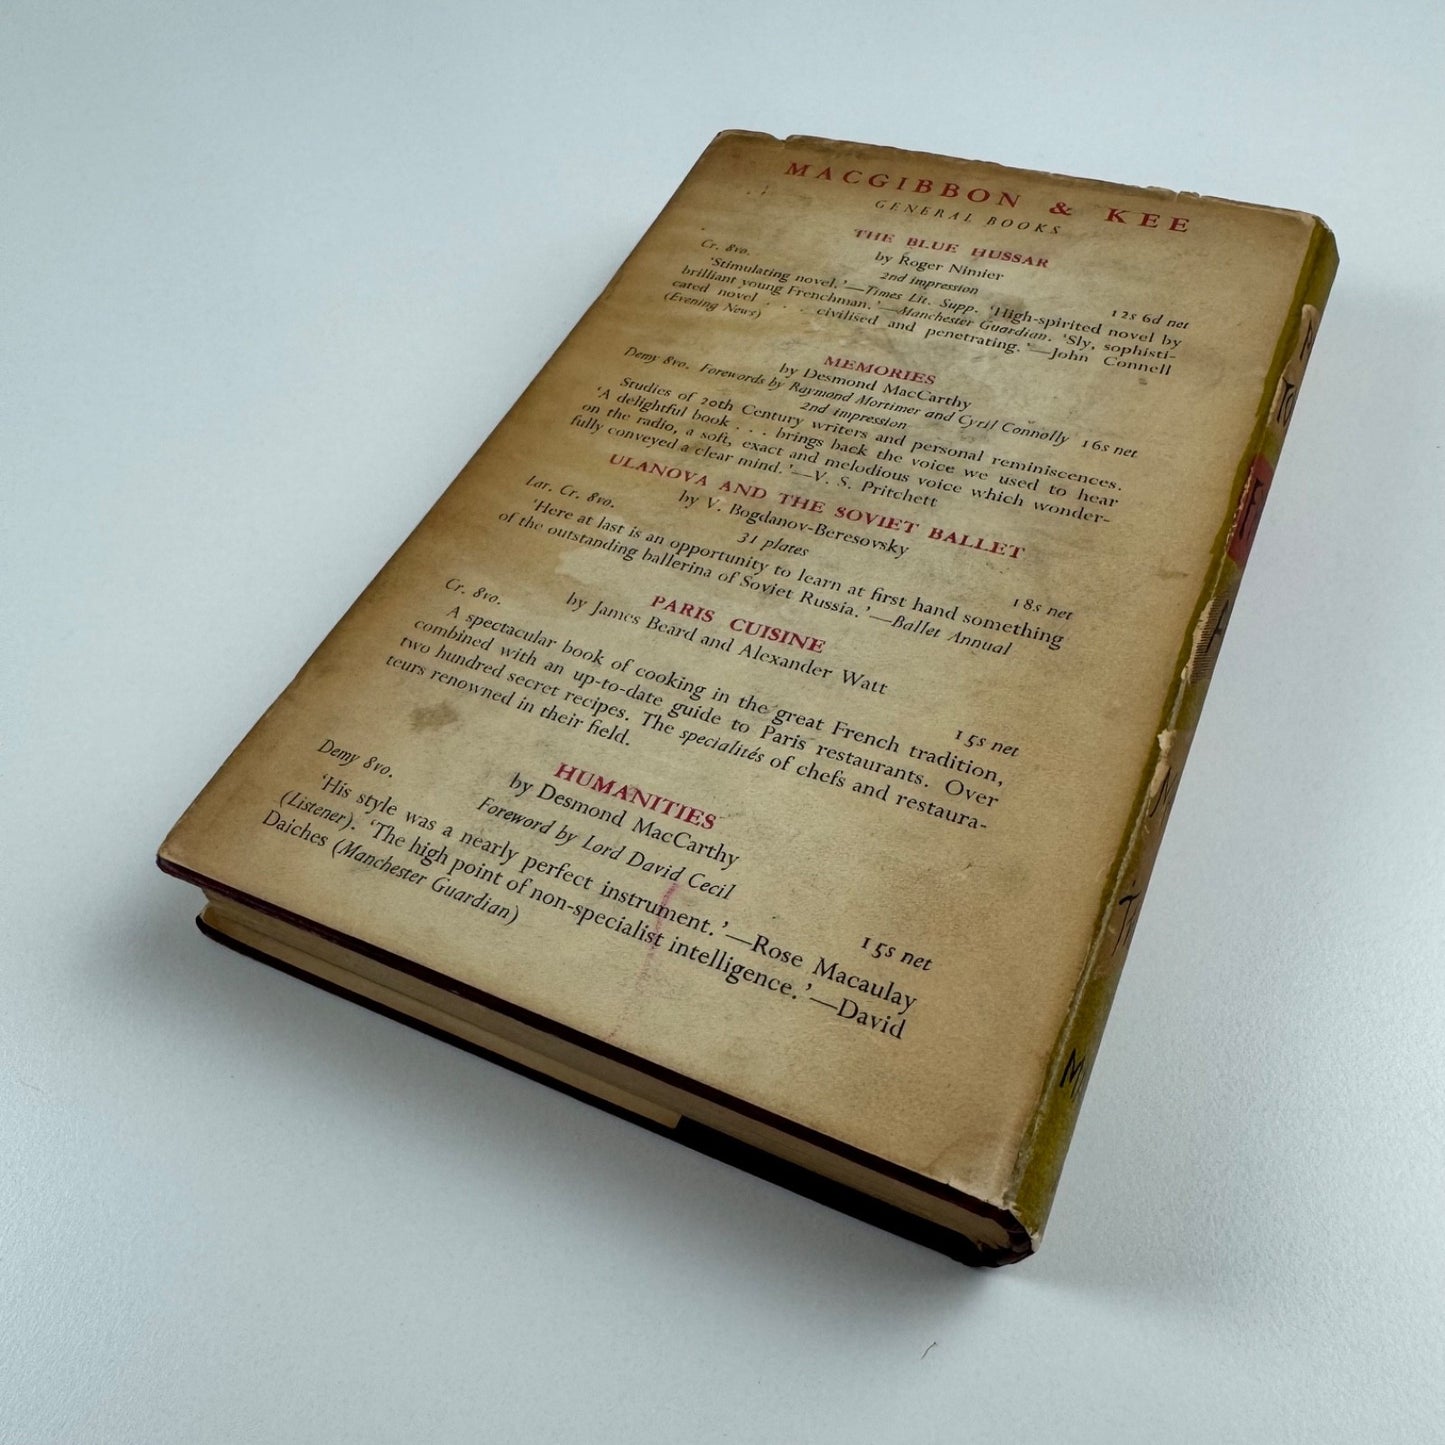 MACGIBBON & KEE
GENERAL BOOKS
THE BLUE HUSSAR
Cr. 8vo. by Roger Nimier 12s 6d net
2nd impression
'Stimulating novel.'—Times Lit. Supp. 'High-spirited novel by
brilliant young Frenchman.'—Manchester Guardian. 'Sly, sophisti-
cated novel . . . civilised and penetrating.'—John Connell
(Evening News)
MEMORIES
by Desmond MacCarthy
Demy 8vo. Forewords by Raymond Mortimer and Cyril Connolly 16s net
2nd impression
Studies of 20th Century writers and personal reminiscences.
'A delightful book . . . brings back the voice we used to hear
on the radio, a soft, exact and melodious voice which wonder-
fully conveyed a clear mind.'—V. S. Pritchett
ULANOVA AND THE SOVIET BALLET
Lar. Cr. 8vo. by V. Bogdanov-Beresovsky 18s net
31 plates
'Here at last is an opportunity to learn at first hand something
of the outstanding ballerina of Soviet Russia.'—Ballet Annual
PARIS CUISINE
Cr. 8vo. by James Beard and Alexander Watt 15s net
A spectacular book of cooking in the great French tradition,
combined with an up-to-date guide to Paris restaurants. Over
two hundred secret recipes. The specialités of chefs and restaura-
teurs renowned in their field.
HUMANITIES
by Desmond MacCarthy
Demy 8vo. Foreword by Lord David Cecil 15s net
'His style was a nearly perfect instrument.'—Rose Macaulay
(Listener). 'The high point of non-specialist intelligence.'—David
Daiches (Manchester Guardian)